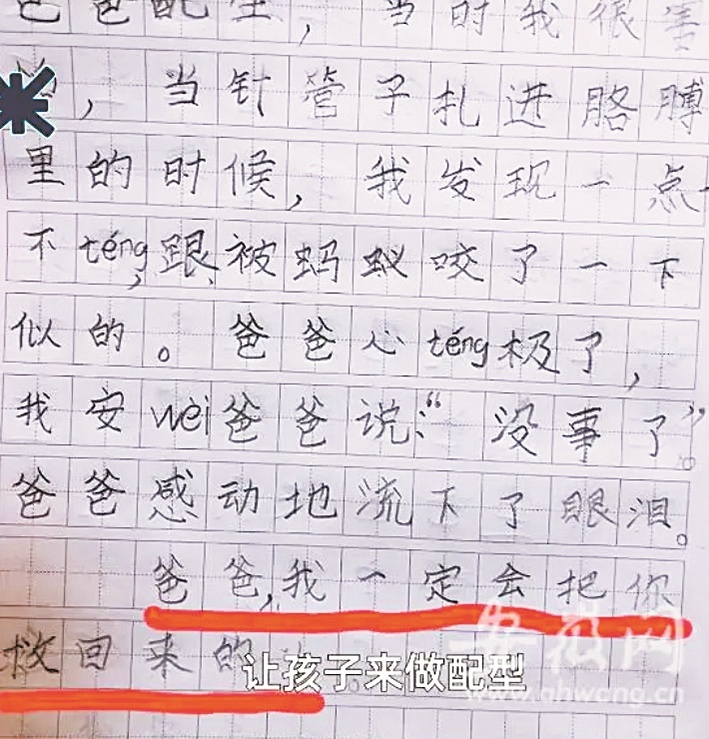 爸爸配型，当时我很害
，当针管子扎进胳膊
里的时候，我发现一点
不téng，跟被蚂蚁咬了一下
似的。爸爸心téng极了，
我安wèi爸爸说：“没事了”。
爸爸感动地流下了眼泪。
爸爸，我一定会把你
救回来的
让孩子来做配型
安徽网
www.ahwang.cn